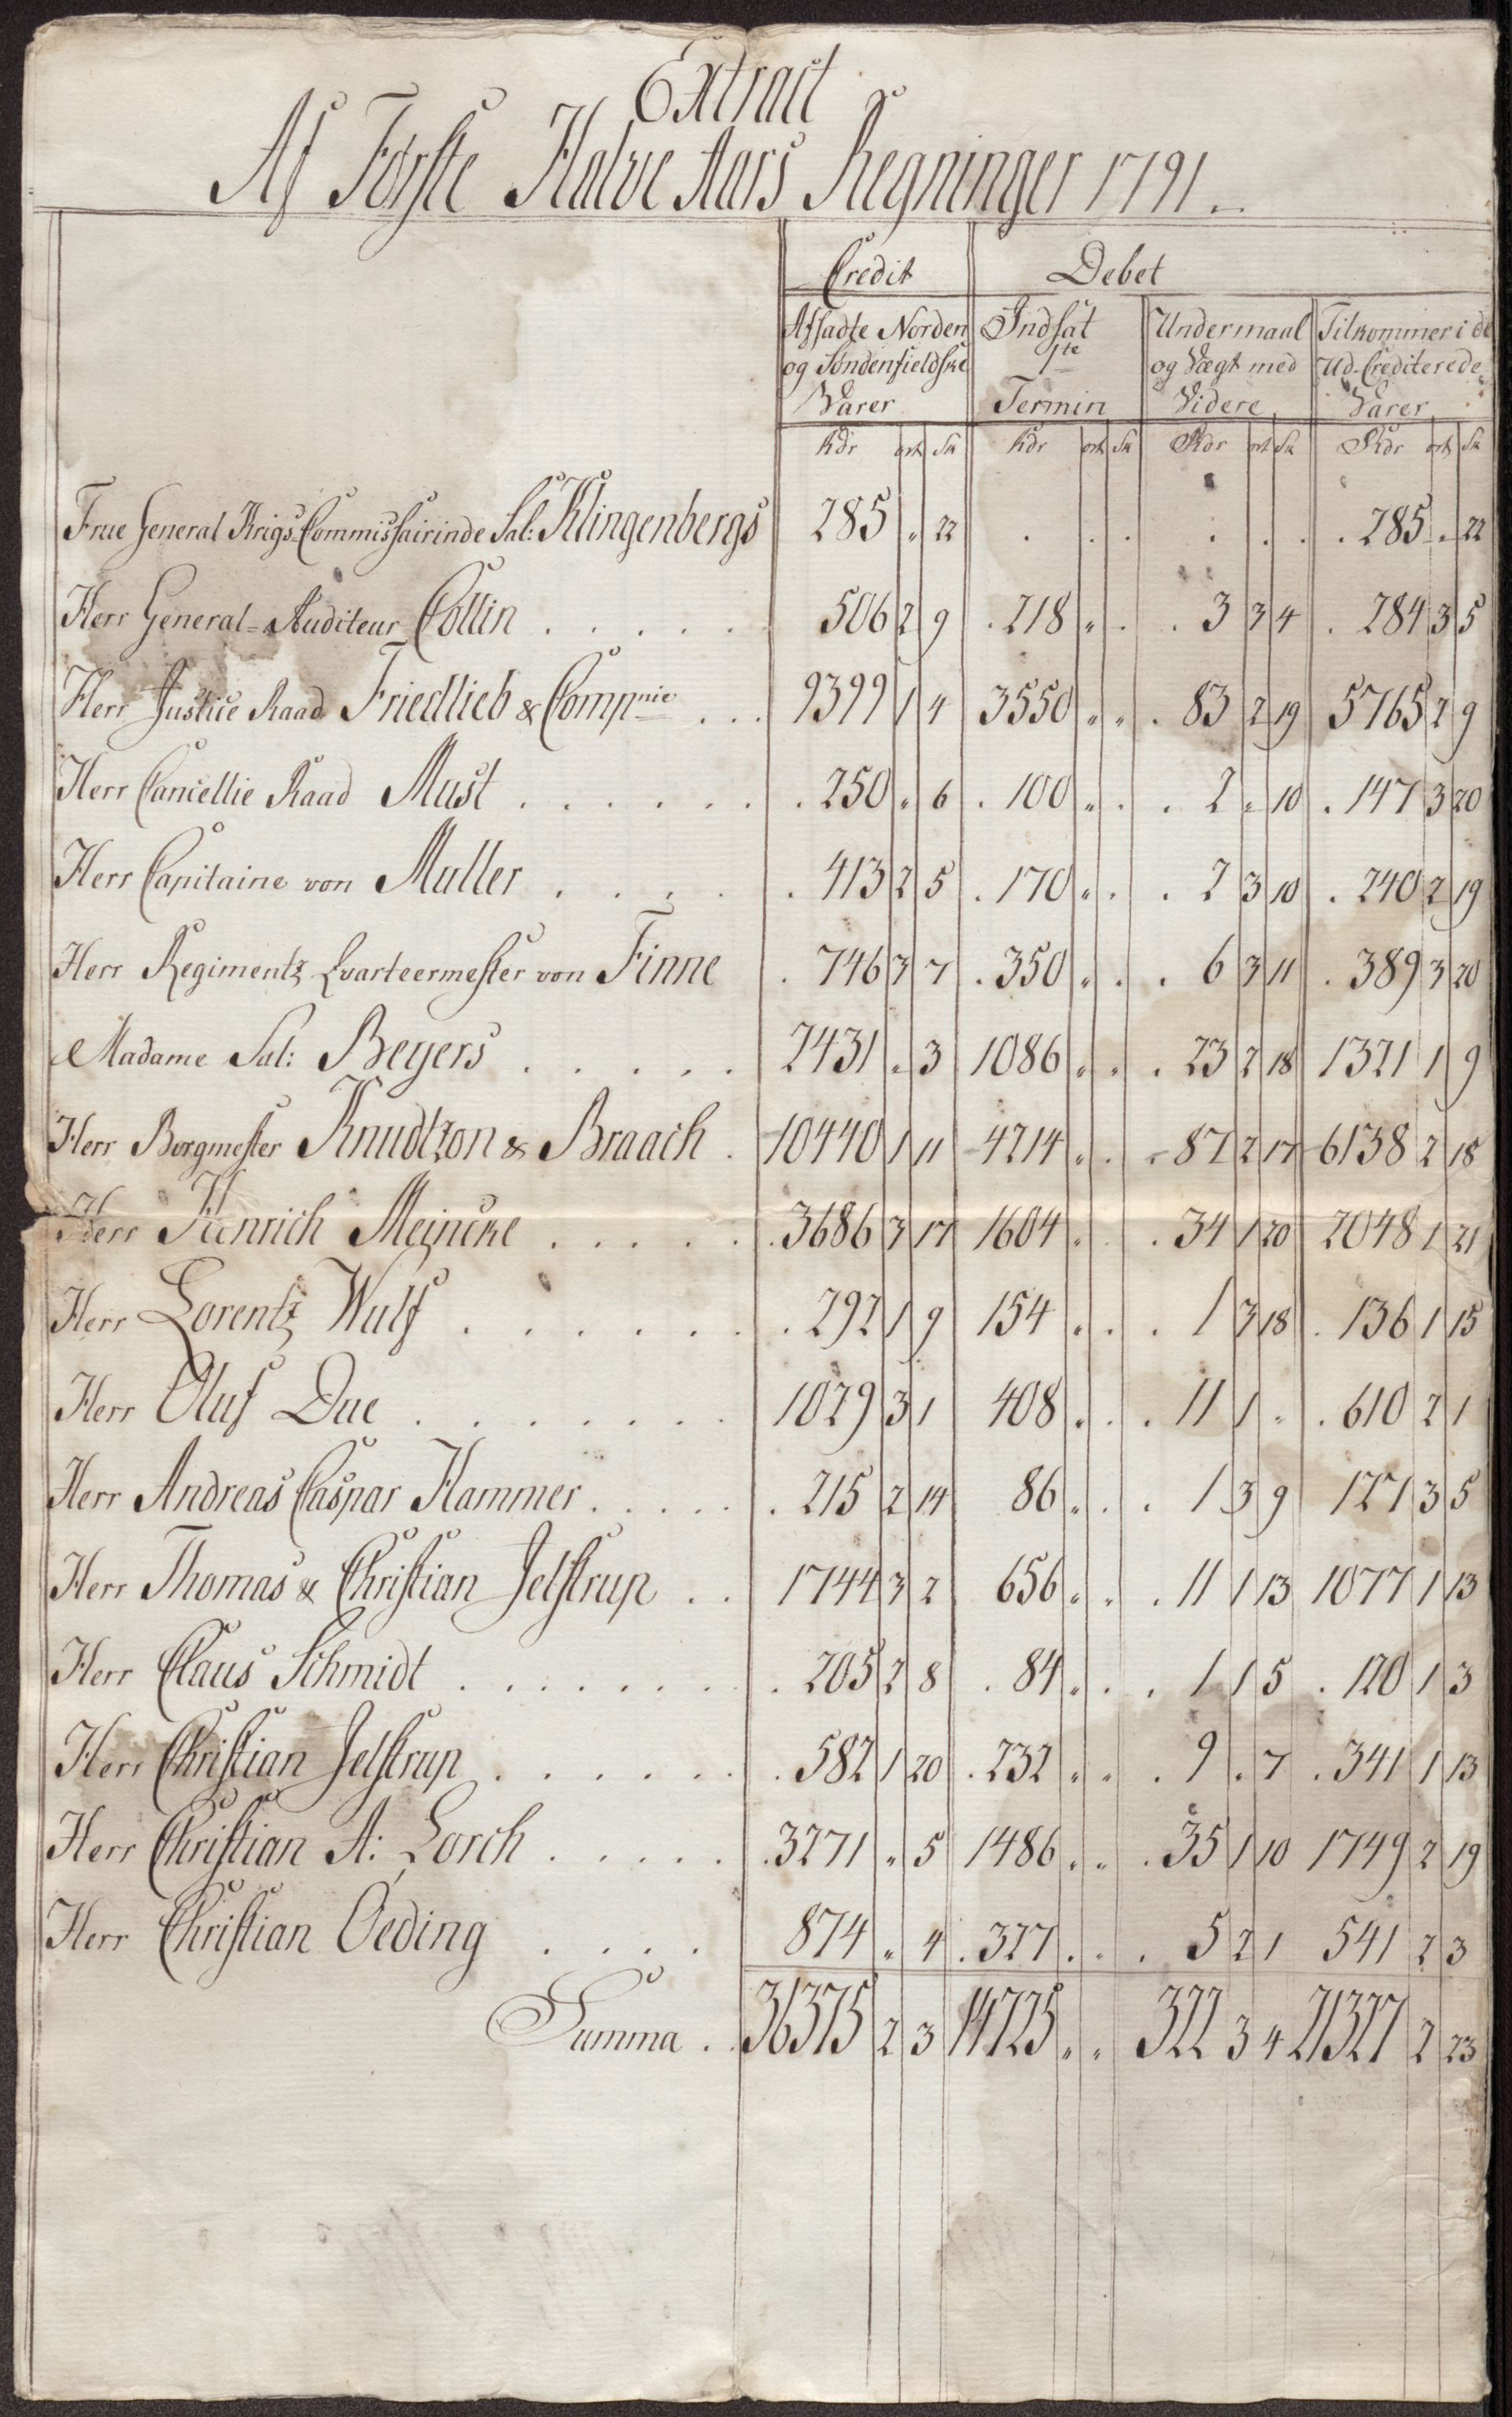 Extract
Af Første Halve Aars Regninger 1791
Credit Debet
Afsadte Norden Indsat Undermaal Tilkommer i de
og Søndenfieldske 1te og Vægt med Ud-Crediterede
Varer Termin Videre Varer
Rdr ort Sk Rdr ort Sk Rdr ort Sk Rdr ort Sk
Frue General Krigs Commissairinde Sal: Klingenbergs 285 " 22 . . . . . . . 285 " 22
Herr General-Auditeur Collin . . . . . 506 2 9 . 218 " . . 3 3 4 . 284 3 5
Herr Justice Raad Friedlieb & Compnie . . . 9399 1 4 3550 " " . 83 2 19 5765 2 9
Herr Cancellie Raad Must . . . . . . . 250 " 6 . 100 " . . 2 " 10 . 147 3 20
Herr Capitaine von Muller . . . . . 413 2 5 . 170 " . . 2 3 10 . 240 2 19
Herr Regimentz Qvarteermester von Finne . 746 3 7 . 350 " . . 6 3 11 . 389 3 20
Madame Sal: Beyers . . . . . 2431 " 3 1086 " . . 23 2 18 1321 1 9
Herr Borgmester Knudtzon & Braach . 10440 1 11 4214 " . 87 2 17 6138 2 18
Herr Henrich Meincke . . . . . . 3686 3 17 1604 " . . 34 1 20 2048 1 21
Herr Lorentz Wulf . . . . . . . . 292 1 9 154 " . . 1 3 18 . 136 1 15
Herr Oluf Due . . . . . . . 1029 3 1 408 " . . 11 1 " . 610 2 1
Herr Andreas Caspar Hammer . . . . . 215 2 14 86 " . . 1 3 9 127 3 5
Herr Thomas & Christian Jelstrup . . 1744 3 2 656 " " . 11 1 13 1077 1 13
Herr Claus Schmidt . . . . . . . . 205 2 8 . 84 " . . 1 1 5 . 120 1 3
Herr Christian Jelstrup . . . . . . . 582 1 20 . 232 " " . 9 . 7 . 341 1 13
Herr Christian A: Lorch . . . . . . 3271 " 5 1486 " " . 35 1 10 1749 2 19
Herr Christian Oeding . . . . 874 " 4 . 327 . . . 5 2 1 541 2 3
Summa . 36375 2 3 14725 " " 322 3 4 21327 2 23